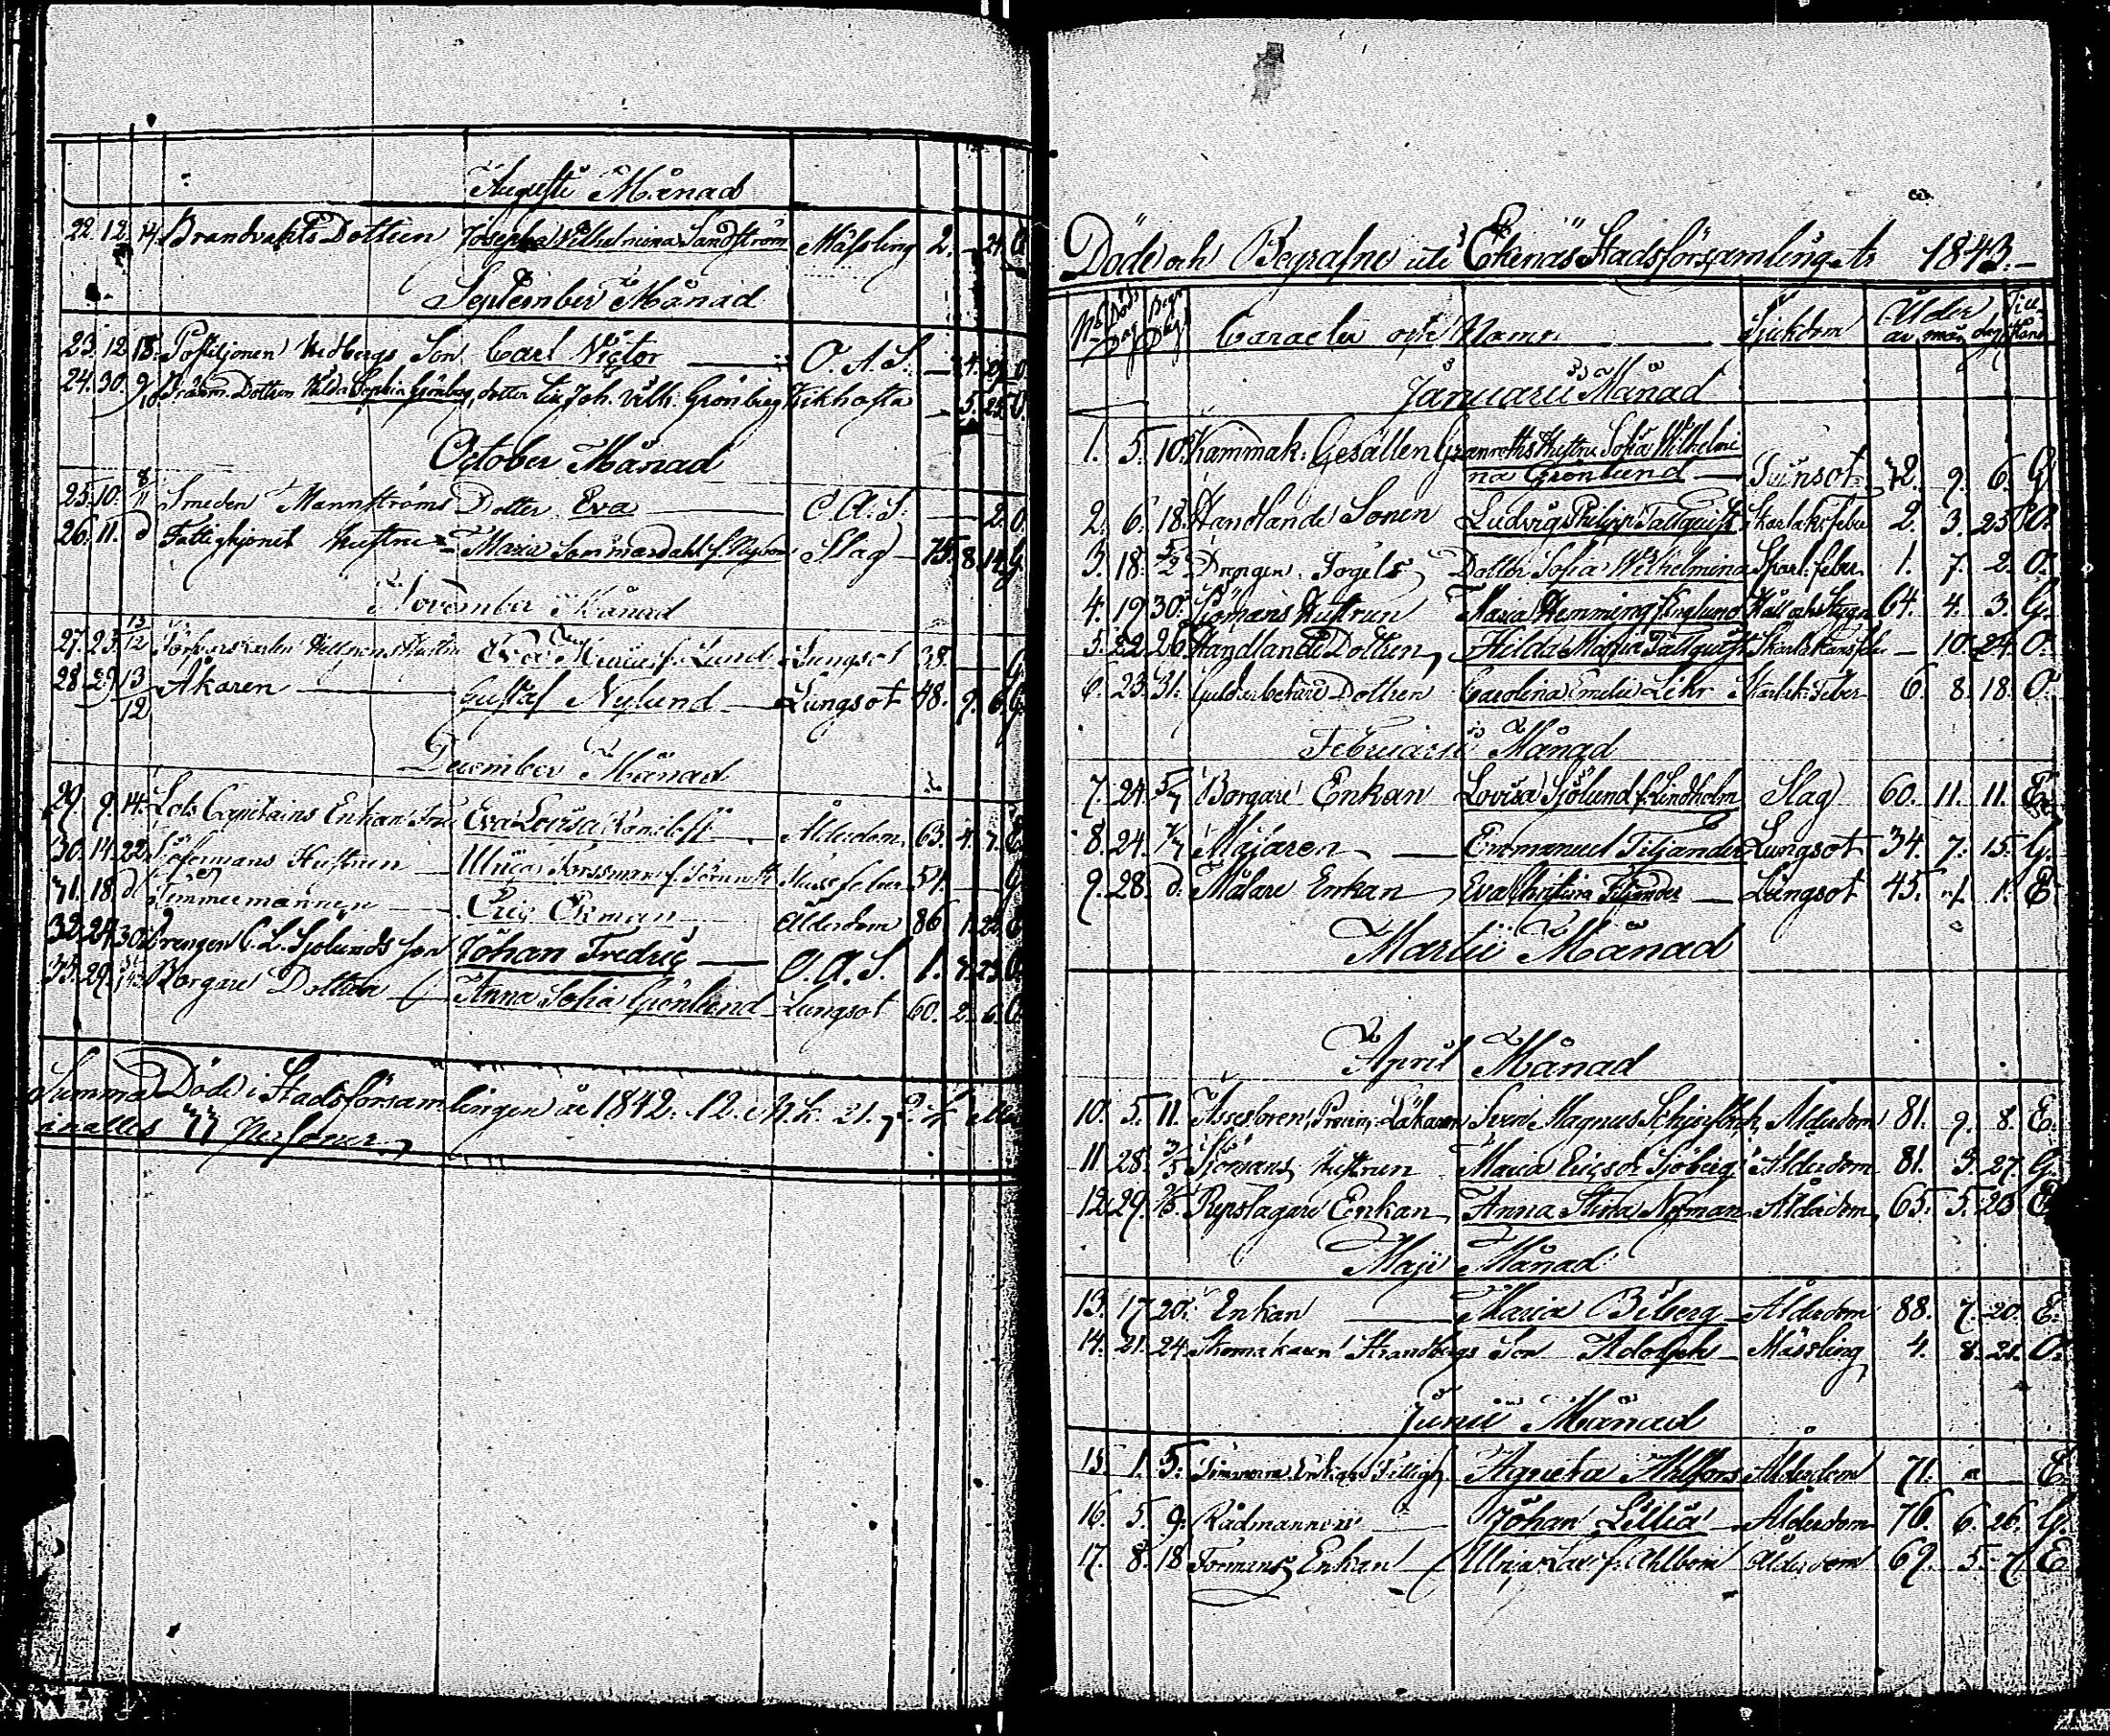 Augusti Månad
22. 12. 14. Brandvakts Dottren Josepha Vilhelmina Sandström Mässling 2. — 24. O.
September Månad
23. 12. 18. Postiljonen Hedbergs Son Carl Victor — O. A. S. — 24. O.
24. 30. 9/10 Dottren Hilda Sophia Grönberg, dotter till Joh. Vilh. Grönberg Kikhosta — 5. 25. O.
October Månad
25. 10. Smeden Mannströms Dotter Eva — O. A. S. — 2. O.
26. 11. d Fattighjonet Hustru Maria Sommardahl f. Slag 75. 8. 14. G.
November Månad
27. 23. Hustru Eva f. Lund Lungsot 38. — G.
28. 29. 13/12 Åkaren — Gustaf Nylund — Lungsot 48. 9. 6. G.
December Månad
29. 9. 14. Lots Capitains Enkan Fru Eva Lovisa — Ålderdom 63. 4. 7. E
30. 14. 22. Hustrun — Ulrica Forssman f. 54. — G
31. 18. d Timmermannen — Eric Ekman — Ålderdom 86 1. 22. G
32. 24. 30. Drengen C. L. Sjölunds son Johan Fredric — O. A. S. 1. 23. O.
33. 29. Borgare Dottren — Anna Sofia Grönlund Lungsot 60. 2. 6. O.
Summa Döde i Stadsförsamlingen år 1842. 12. M.k. 21.
inalles 33 Personer
Döde och Begrafne uti Ekenäs Stadsförsamling År 1843.
No Död Dag Begr Dag Caracter och Namn Sjukdom Ålder år mån dag Stånd
Januarii Månad
1. 5. 10. Kammak. Gesällen Granroths Hustru Sofia Wilhelmi
na Grönlund — Tvinsot 42. 9. 6. G.
2. 6. 18. Handlande Sonen Ludvig Philipp Tallquist Skarlak feber 2. 3. 25. O.
3. 18. Drengen Fogels Dotter Sofia Wilhelmina Skarl. feber 1. 7. 2. O.
4. 19. 30. Sjömans Hustrun Maria Hemming f. Englund Håll och Stygn 64. 4. 3. G.
5. 22. 26. Handlande Dottren Hilda Maria Tallquist Skarlakans feber — 10. 24. O.
6. 23. 31. Guldarbetare Dottren Carolina Emelie Lihr Skarlak. Feber 6. 8. 18. O.
Februarii Månad
7. 24. Borgare Enkan Lovisa Sjölund f. Lindholm Slag 60. 11. 11. E.
8. 24. Målaren — Emmanuel Tiljander Lungsot 34. 7. 15. G.
9. 28. d. Målare Enkan Eva Christina Tiljander — Lungsot 45. 1. E.
Martii Månad
April Månad
10. 5. 11. Assessoren, Provin. Läkaren Sven Magnus Ålderdom 81. 9. 8. E.
11 28. Sjömans Hustrun Maria Ericsdr Sjöberg Ålderdom 81. 3. 27. G.
12. 29. Repslagare Enkan Anna Stina Norman Ålderdom 65. 5. 23. E
Maji Månad
13. 17. 20. Enkan — Maria Biberg — Ålderdom 88. 7. 20. E.
14. 21. 24. Skomakaren Strandbergs Son Adolph — Mässling 4. 8. 21. O.
Junii Månad
15. 1. 5. Agneta Ahlfors Ålderdom 71. — E.
16. 5. 9. Rådmannen — Johan Lillia — Ålderdom 76. 6. 26. G.
17. 8. 18. Formans Enkan — Ulrica f. Ahlbom Ålderdom 69. 5. 7. E